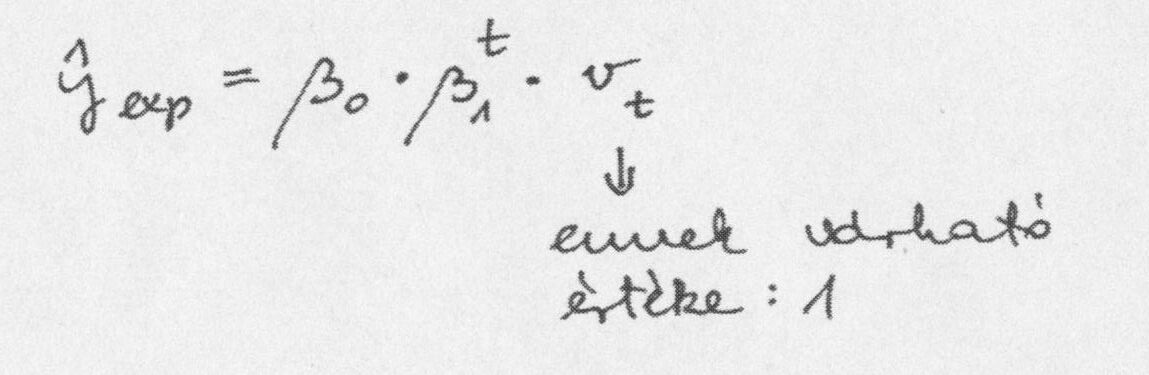 ŷ exp = β₀ · β₁ᵗ · vₜ
↓
ennek várható
értéke : 1